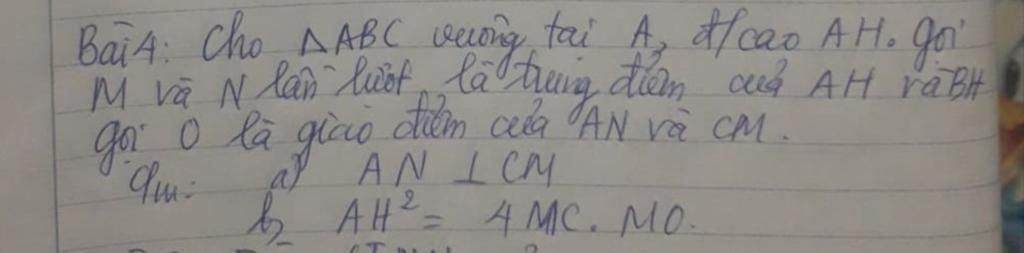 Bài 4: Cho △ABC vuông tại A, đ/cao AH. gọi
M và N lần lượt là trung điểm của AH và BH
gọi O là giao điểm của AN và CM.
Cm: a) AN ⊥ CM
b, AH² = 4MC. MO.